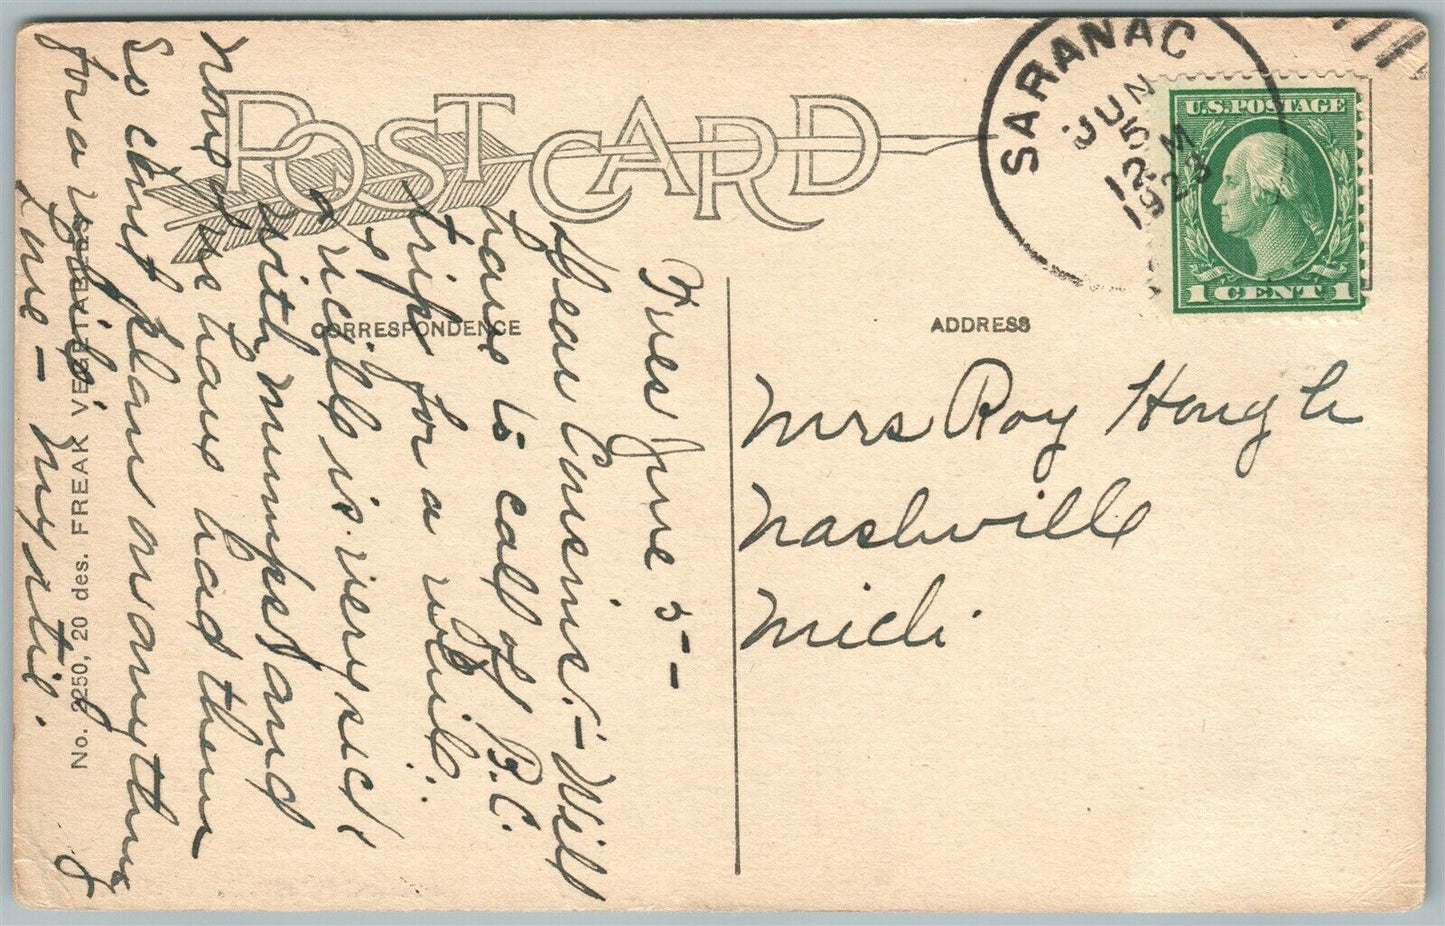 POST CARD
CORRESPONDENCE
ADDRESS
SARANAC
JUN
5
12 M
1923
U.S. POSTAGE
1 CENT 1
Mrs Roy Hough
Nashville
Mich
Tues June 5 -
Dear Cousins. - Will
have to call off B.C.
trip for a while.
is very sick
with mumps and
none of us have had them
so can't plan on anything
for a while.
Love - Myrtie.
No. 2250, 20 des. FREAK VEGETABLES